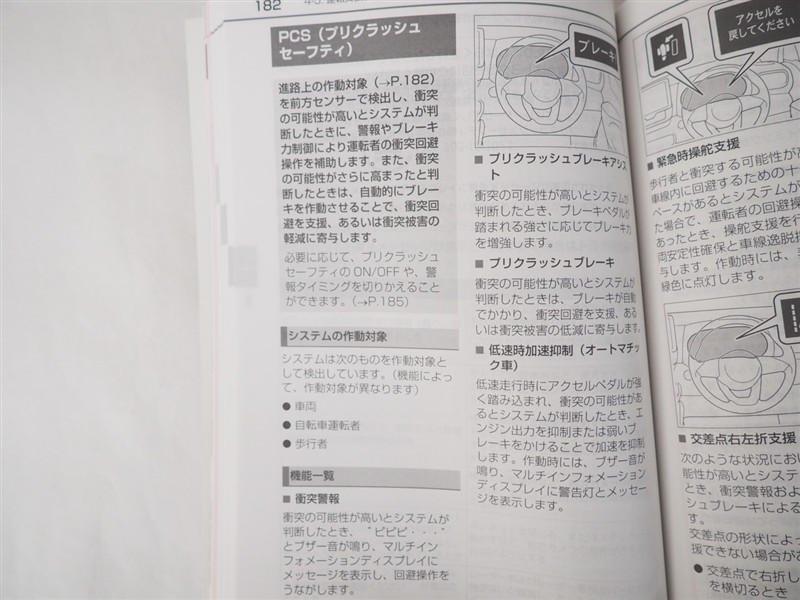 182
PCS（プリクラッシュ
セーフティ）
進路上の作動対象（→P.182）
を前方センサーで検出し、衝突
の可能性が高いとシステムが判
断したときに、警報やブレーキ
力制御により運転者の衝突回避
操作を補助します。また、衝突
の可能性がさらに高まったと判
断したときは、自動的にブレー
キを作動させることで、衝突回
避を支援、あるいは衝突被害の
軽減に寄与します。
必要に応じて、プリクラッシュ
セーフティの ON/OFF や、警
報タイミングを切りかえること
ができます。（→P.185）
システムの作動対象
システムは次のものを作動対象と
して検出しています。（機能によっ
て、作動対象が異なります）
● 車両
● 自転車運転者
● 歩行者
機能一覧
■ 衝突警報
衝突の可能性が高いとシステムが
判断したとき、“ピピピ・・・”
とブザー音が鳴り、マルチイン
フォメーションディスプレイに
メッセージを表示し、回避操作を
うながします。
ブレーキ
■ プリクラッシュブレーキアシス
ト
衝突の可能性が高いとシステムが
判断したとき、ブレーキペダルが
踏まれる強さに応じてブレーキ力
を増強します。
■ プリクラッシュブレーキ
衝突の可能性が高いとシステムが
判断したときは、ブレーキが自動
でかかり、衝突回避を支援、ある
いは衝突被害の低減に寄与します。
■ 低速時加速抑制（オートマチッ
ク車）
低速走行時にアクセルペダルが強
く踏み込まれ、衝突の可能性があ
るとシステムが判断したとき、エ
ンジン出力を抑制または弱いブ
レーキをかけることで加速を抑制
します。作動時には、ブザー音が
鳴り、マルチインフォメーション
ディスプレイに警告灯とメッセー
ジを表示します。
アクセルを
戻してください
■ 緊急時操舵支援
歩行者と衝突する可能性が高
車線内に回避するための十
ペースがあるとシステムが
た場合で、運転者の回避操
あったとき、操舵支援を行
両安定性確保と車線逸脱抑
与します。作動時には、
緑色に点灯します。
■ 交差点右左折支援
次のような状況におい
能性が高いとシステム
とき、衝突警報およ
シュブレーキによる
す。
交差点の形状によっ
援できない場合が
● 交差点で右折し
を横切るとき